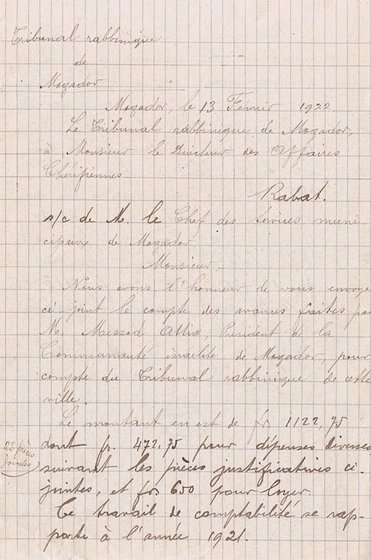 Tribunal rabbinique
de
Mogador
Mogador, le 13 Février 1922
Le Tribunal rabbinique de Mogador,
à Monsieur le Directeur des Affaires
Chérifiennes
Rabat.
s/c de M. le Chef des Services muni
cipaux de Mogador
Monsieur,
Nous avons l'honneur de vous envoyer
ci joint le compte des avances faites par
M. Messod Attia Président de la
Communauté israélite de Mogador, pour
compte du Tribunal rabbinique de cette
ville.
Le montant en est de fr 1122,75
dont fr. 472.75 pour dépenses diverses
suivant les pièces justificatives ci-
jointes, et fr 650 pour loyer.
Ce travail de comptabilité se rap-
porte à l'année 1921.
pièces
jointes